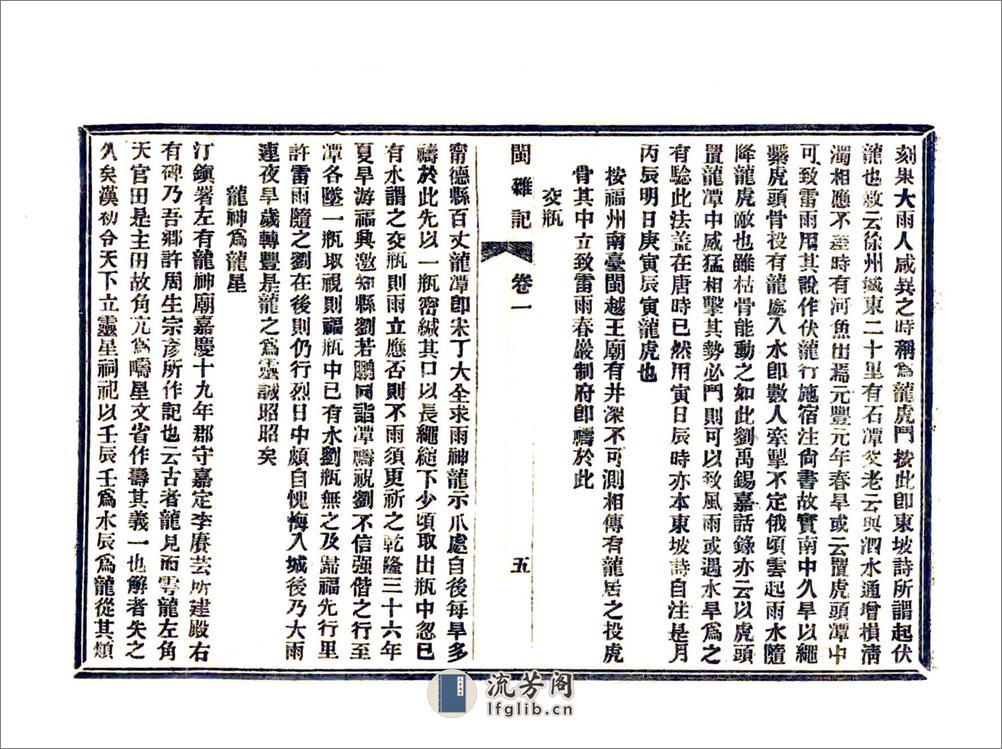 刻果大雨人咸異之時稱爲龍虎鬥按此卽東坡詩所謂起伏
龍也敘云徐州城東二十里有石潭父老云與泗水通增損淸
濁相應不差時有河魚出焉元豐元年春旱或云置虎頭潭中
可致雷雨用其說作伏龍行施宿注尙書故實南中久旱以繩
繫虎頭骨投有龍處入水卽數人牽掣不定俄頃雲起雨水隨
降龍虎敵也雖枯骨能動之如此劉禹錫嘉話錄亦云以虎頭
置龍潭中威猛相擊其勢必鬥則可以致風雨或遇水旱爲之
有驗此法蓋在唐時已然用寅日辰時亦本東坡詩自注是月
丙辰明日庚寅辰寅龍虎也
按福州南臺閩越王廟有井深不可測相傳有龍居之投虎
骨其中立致雷雨春嚴制府卽禱於此
交瓶
閩雜記
卷一
五
甯德縣百丈龍潭卽宋丁大全求雨神龍示爪處自後每旱多
禱於此先以一瓶密緘其口以長繩縋下少頃取出瓶中忽已
有水謂之交瓶則雨立應否則不雨須更祈之乾隆三十六年
夏旱游福興邀知縣劉若鵬同詣潭禱視劉不信强偕之行至
潭各墜一瓶取視則福瓶中已有水劉瓶無之及歸福先行里
許雷雨隨之劉在後則仍行烈日中頗自愧悔入城後乃大雨
連夜旱歲轉豐是龍之爲靈誠昭昭矣
龍神爲龍星
汀鎭署左有龍神廟嘉慶十九年郡守嘉定李賡芸所建殿右
有碑乃吾鄉許周生宗彥所作記也云古者龍見而雩龍左角
天官田是主田故角亢爲疇星文省作壽其義一也解者失之
久矣漢初令天下立靈星祠祀以壬辰壬爲水辰爲龍從其類
流芳阁
lfglib.cn